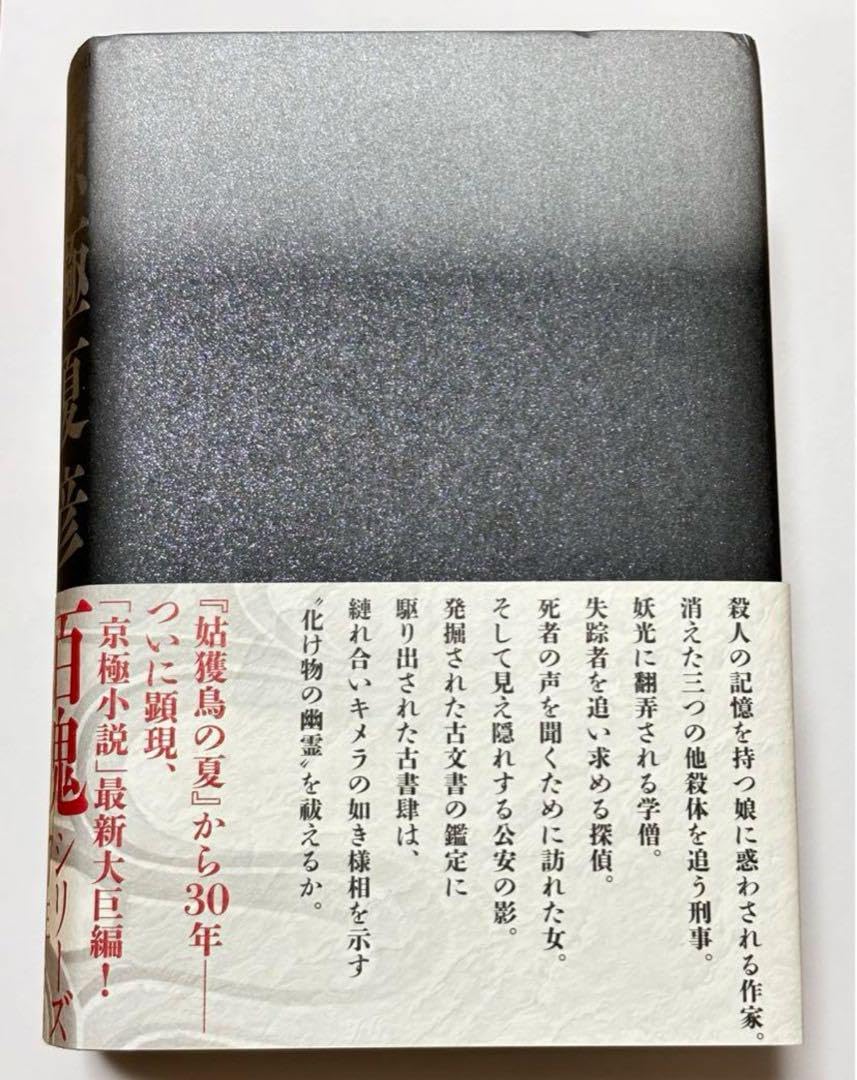 殺人の記憶を持つ娘に惑わされる作家。
消えた三つの他殺体を追う刑事。
妖光に翻弄される学僧。
失踪者を追い求める探偵。
死者の声を聞くために訪れた女。
そして見え隠れする公安の影。
発掘された古文書の鑑定に
駆り出された古書肆は、
縺れ合いキメラの如き様相を示す
〝化け物の幽霊〟を祓えるか。
『姑獲鳥の夏』から30年──
ついに顕現、
「京極小説」最新大巨編！
京極夏彦
百鬼
シリーズ